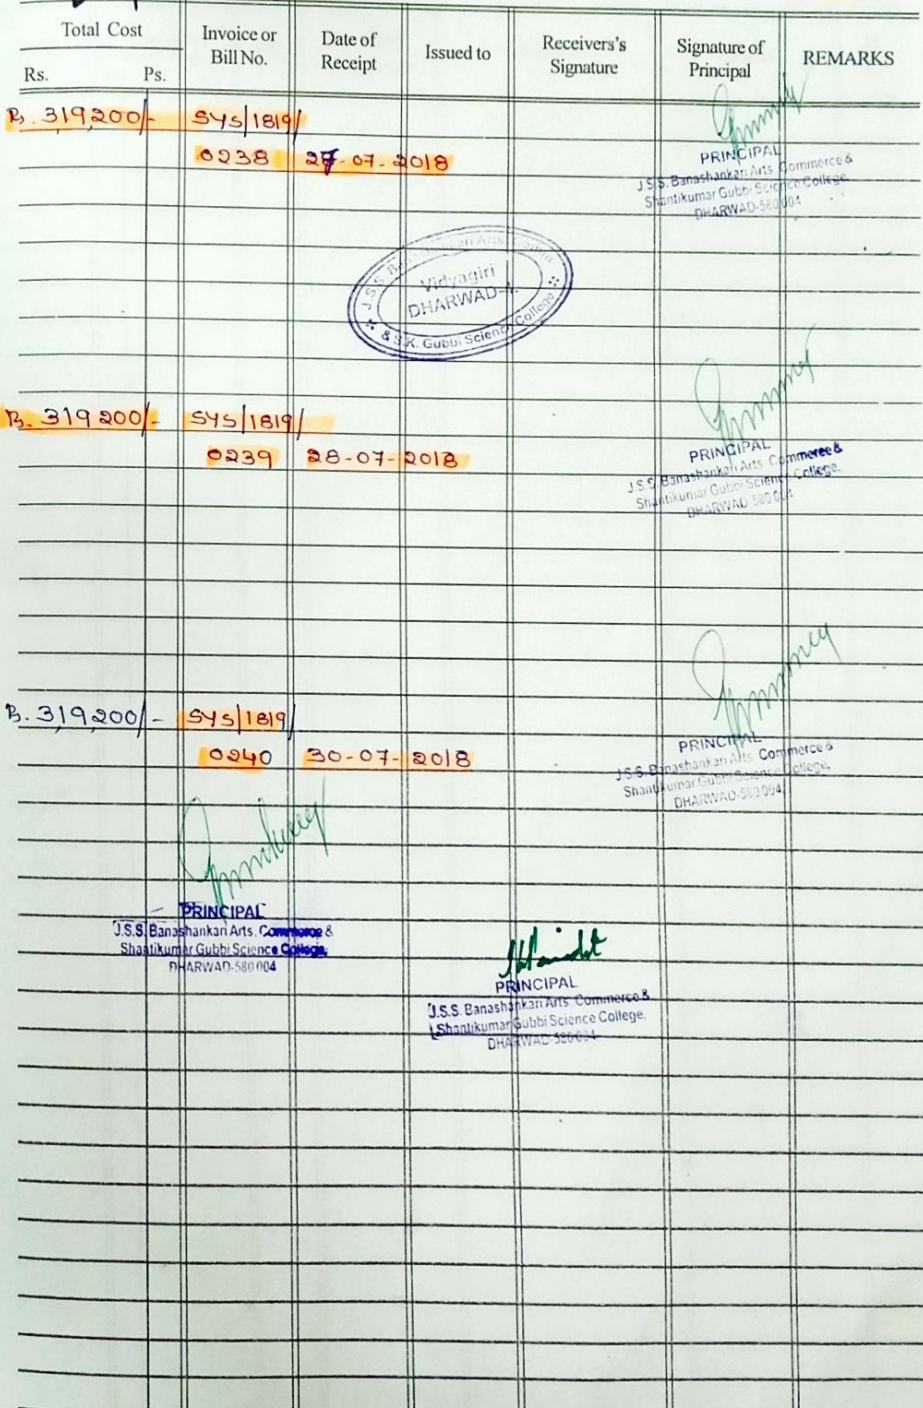 Total Cost
Rs. Ps.
Invoice or
Bill No.
Date of
Receipt
Issued to
Receivers's
Signature
Signature of
Principal
REMARKS
Rs. 319,200/- SYS/1819/
0238 27-07-2018
PRINCIPAL
J.S.S. Banashankari Arts, Commerce &
Shantikumar Gubbi Science College,
DHARWAD-580 004
J.S.S. Banashankari Arts
Vidyagiri
DHARWAD-4.
& S.K. Gubbi Science College
Rs. 319,200/- SYS/1819/
0239 28-07-2018
PRINCIPAL
J.S.S. Banashankari Arts, Commerce &
Shantikumar Gubbi Science College,
DHARWAD-580 004
Rs. 319,200/- SYS/1819/
0240 30-07-2018
PRINCIPAL
J.S.S. Banashankari Arts, Commerce &
Shantikumar Gubbi Science College,
DHARWAD-580 004
PRINCIPAL
J.S.S. Banashankari Arts, Commerce &
Shantikumar Gubbi Science College,
DHARWAD-580 004
PRINCIPAL
J.S.S. Banashankari Arts, Commerce &
Shantikumar Gubbi Science College,
DHARWAD-580 004